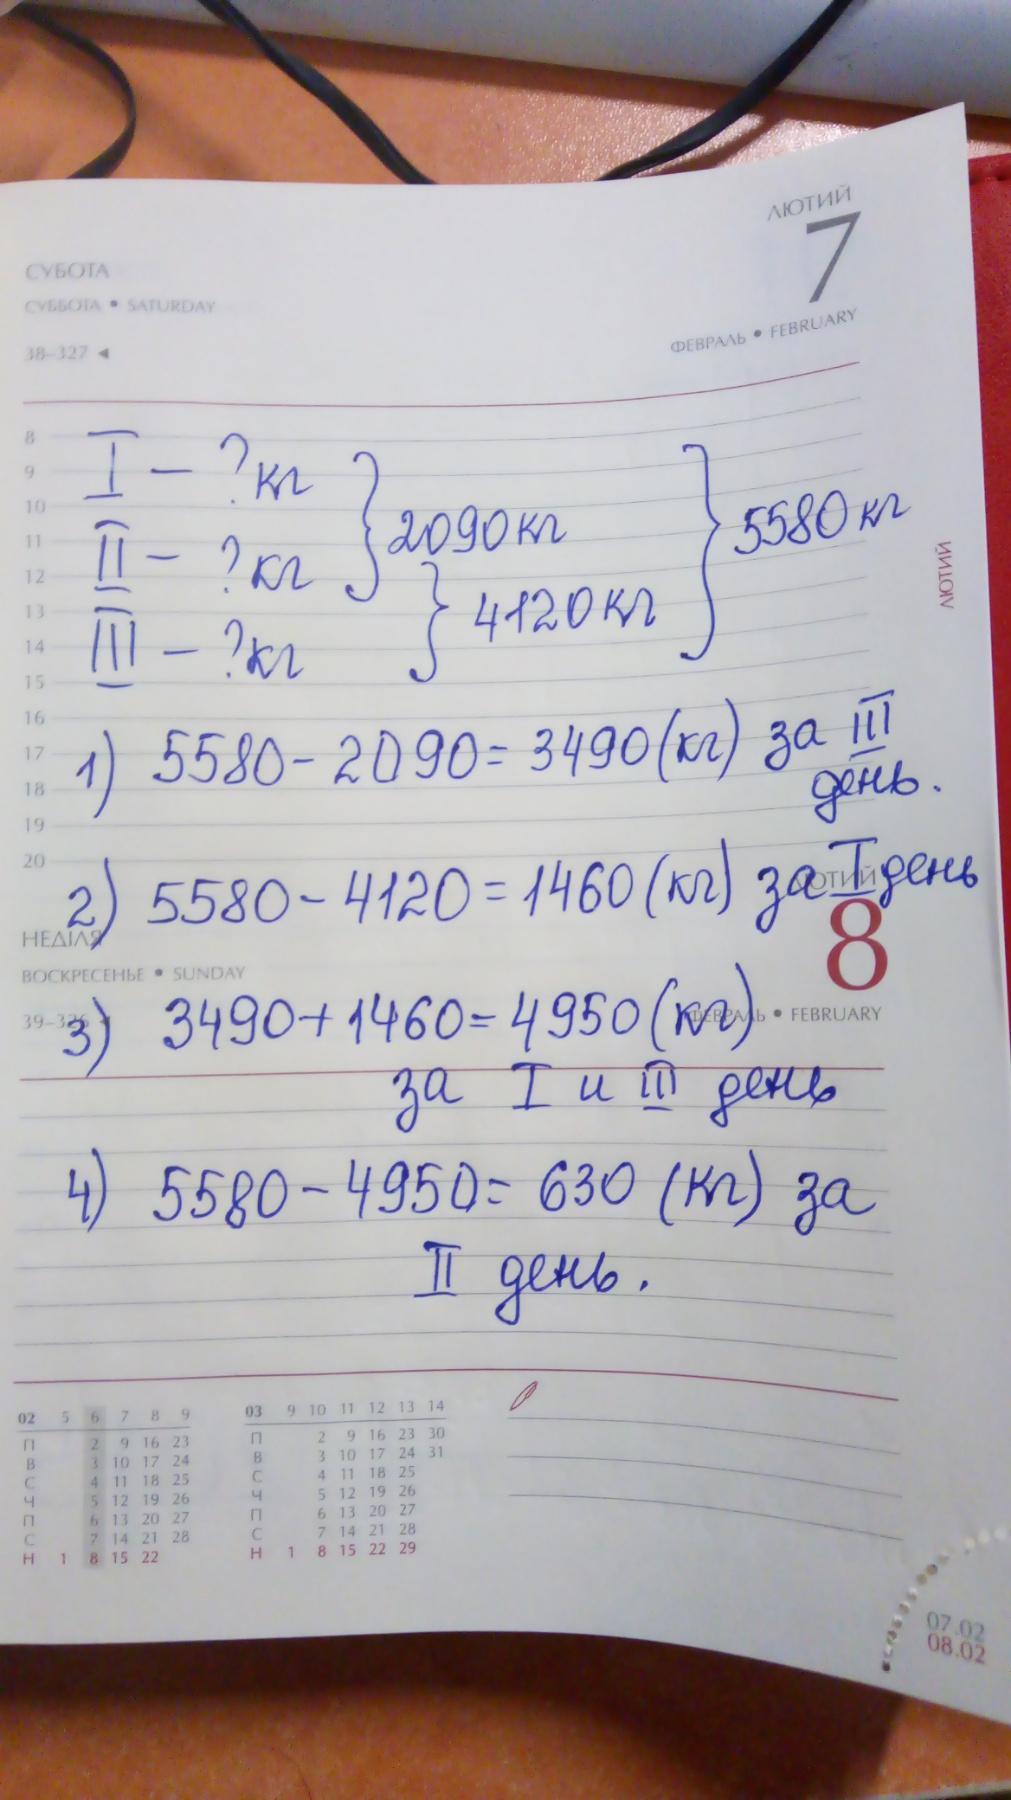 ЛЮТИЙ
7
СУБОТА
СУББОТА • SATURDAY
ФЕВРАЛЬ • FEBRUARY
38–327 ◄
8
9
10
11
12
13
14
15
16
17
18
19
20
I – ? кг
2090 кг
5580 кг
II – ? кг
4120 кг
III – ? кг
ЛЮТИЙ
1) 5580 – 2090 = 3490 (кг) за III
день.
2) 5580 – 4120 = 1460 (кг) за I день
ЛЮТИЙ
8
НЕДІЛЯ
ВОСКРЕСЕНЬЕ • SUNDAY
ФЕВРАЛЬ • FEBRUARY
39–326 ◄
3) 3490 + 1460 = 4950 (кг)
за I и III день
4) 5580 – 4950 = 630 (кг) за
II день.
02 5 6 7 8 9
П 2 9 16 23
В 3 10 17 24
С 4 11 18 25
Ч 5 12 19 26
П 6 13 20 27
С 7 14 21 28
Н 1 8 15 22
03 9 10 11 12 13 14
П 2 9 16 23 30
В 3 10 17 24 31
С 4 11 18 25
Ч 5 12 19 26
П 6 13 20 27
С 7 14 21 28
Н 1 8 15 22 29
07.02
08.02